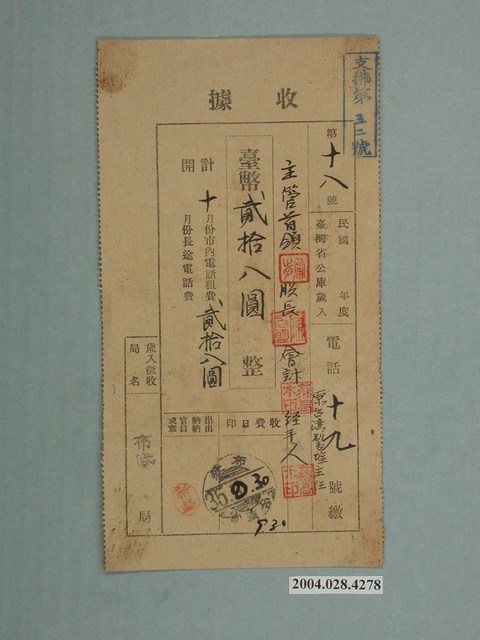 收據
支拂第五二號
第十八號
民國 年度
臺灣省公庫歲入
電話十九號繳
主管首領 股長 會計 經手人
臺幣貳拾八圓整
計開
十月份市內電話租費貳拾八圓
月份長途電話費
收費日印
出納官員
出納
歲入徵收局名
布袋局
35.9.30
9.30
2004.028.4278